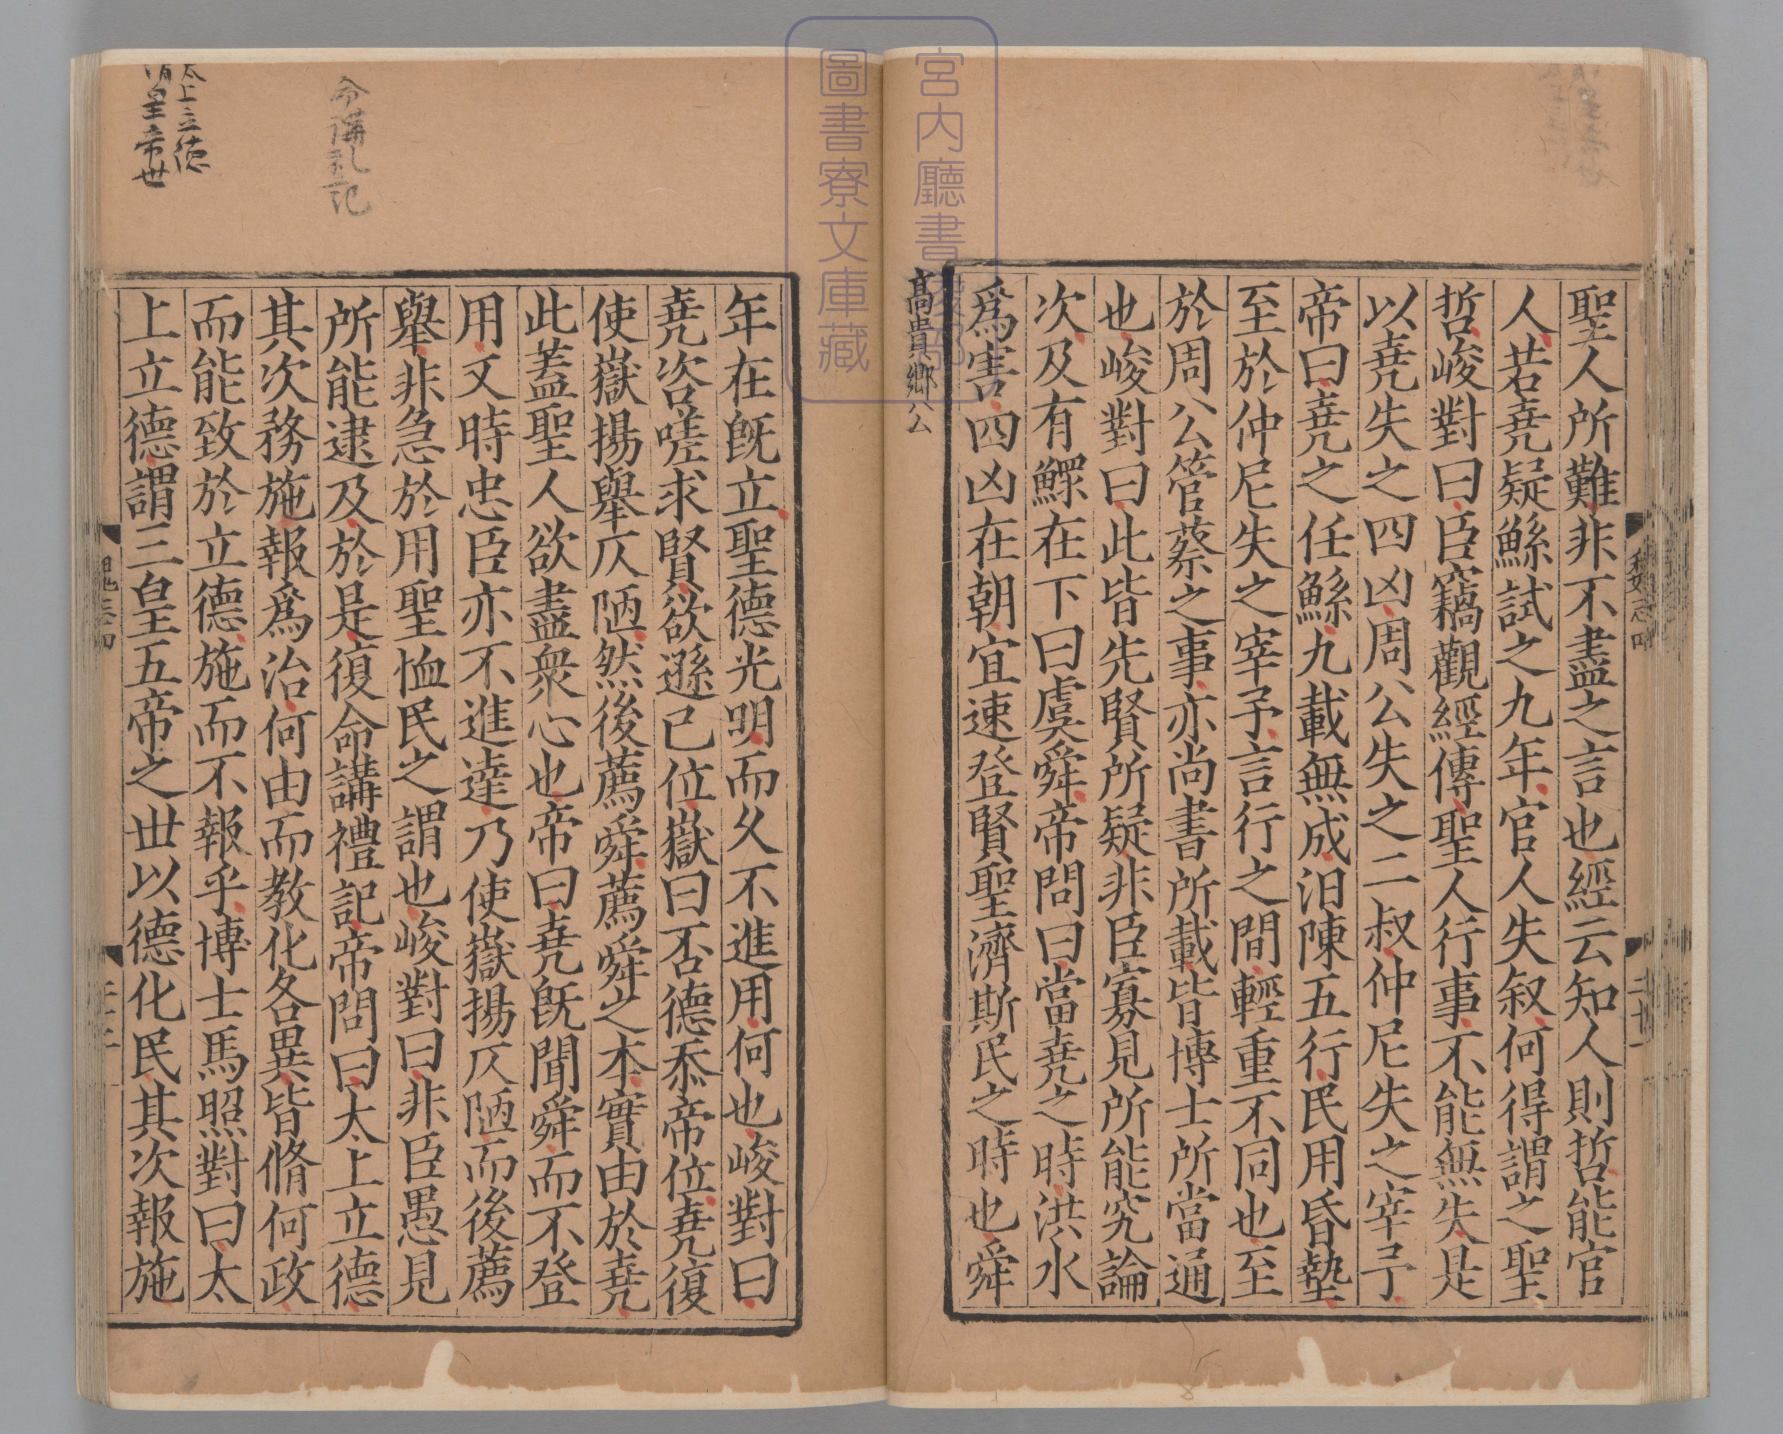 聖人所難非不盡之言也經云知人則哲能官
人若堯疑鯀試之九年官人失叙何得謂之聖
哲峻對曰臣竊觀經傳聖人行事不能無失是
以堯失之四凶周公失之二叔仲尼失之宰予
帝曰堯之任鯀九載無成汨陳五行民用昏墊
至於仲尼失之宰予言行之間輕重不同也至
於周公管蔡之事亦尚書所載皆博士所當通
也峻對曰此皆先賢所疑非臣寡見所能究論
次及有鰥在下曰虞舜帝問曰當堯之時洪水
爲害四凶在朝宜速登賢聖濟斯民之時也舜
高貴鄉公
年在旣立聖德光明而久不進用何也峻對曰
堯咨嗟求賢欲遜己位嶽曰否德忝帝位堯復
使嶽揚舉仄陋然後薦舜薦舜之本實由於堯
此蓋聖人欲盡衆心也帝曰堯旣聞舜而不登
用又時忠臣亦不進達乃使嶽揚仄陋而後薦
舉非急於用聖恤民之謂也峻對曰非臣愚見
所能逮及於是復命講禮記帝問曰太上立德
其次務施報爲治何由而教化各異皆脩何政
而能致於立德施而不報乎博士馬照對曰太
上立德謂三皇五帝之世以德化民其次報施
命講礼記
太上立德
皇帝世
宮内廳書陵部
圖書寮文庫藏